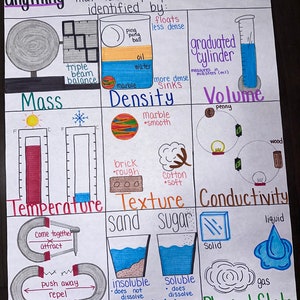 anything
identified by:
triple
beam
balance
Mass
ping
pong
ball
oil
water
floats
less dense
more dense
sinks
Density
graduated
cylinder
measures in
milliliters (mL)
Volume
marble
•smooth
brick
•rough
cotton
•soft
Texture
Temperature
penny
wood
Conductivity
come together
attract
push away
repel
sand
insoluble
• does not
dissolve
sugar
Soluble
• does
dissolve
solid
liquid
gas